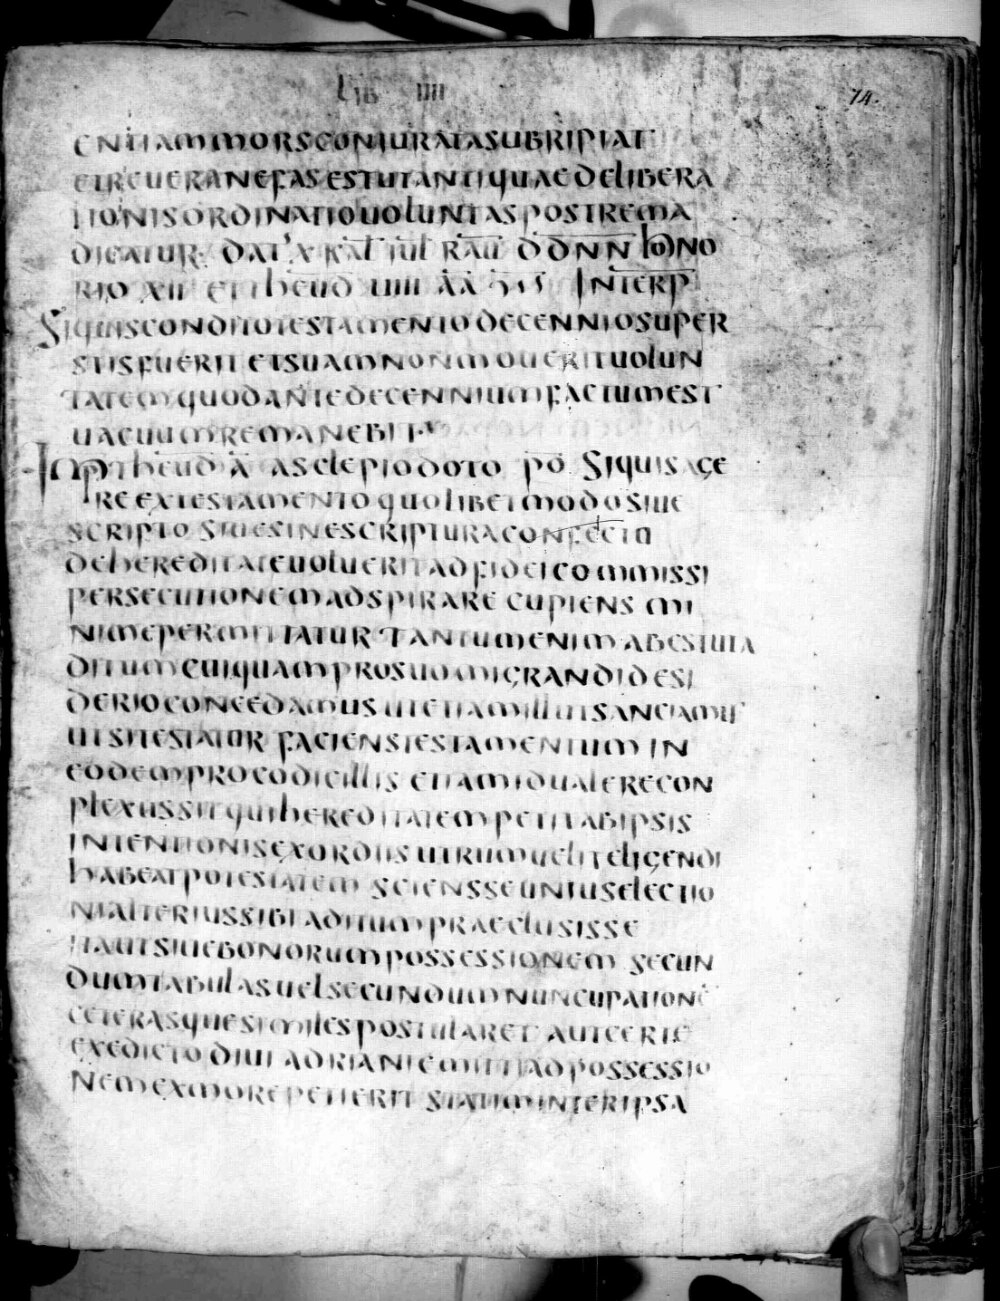 LIB IIII
74.
ENTIAMMORSCONIURATASUBRIPIAT
ETREUERANEFASESTUTANTIQUAEDELIBERA
TIONISORDINATIOUOLUNTASPOSTREMA
DICATUR DAT X KAL IUL RAU DDNN HONO
RIO XII ET THEUD UIIII AA INTERP
SIQUISCONDITOTESTAMENTODECENNIOSUPER
STISFUERITETSUAMNONMOUERITUOLUN
TATEMQUODANTEDECENNIUMFACTUMEST
UACUUMREMANEBIT
IMP THEUD A ASCLEPIODOTO PO SIQUISAGE
REEXTESTAMENTOQUOLIBETMODOSIUE
SCRIPTO SIUESINESCRIPTURACONFECTO
DEHEREDITATEUOLUERITADFIDEICOMMISSI
PERSECUTIONEMADSPIRARE CUPIENS MI
NIMEPERMITTATUR TANTUMENIMABESTUTA
DITUMCUIQUAMPROSUOMIGRANDIDESI
DERIOCONCEDAMUS UTETIAMILLUTSANCIAMUS
UTSITESTATOR FACIENSTESTAMENTUM IN
EODEMPROCODICILLIS ETIAMIDUALERECON
PLEXUSSITQUIHEREDITATEMPETITABIPSIS
INTENTIONISEXORDIISUTRUMUELITELIGENDI
HABEATPOTESTATEM SCIENSSEUNIUSELECTIO
NIALTERIUSSIBIADITUMPRAECLUSISSE
ITAUTSIUEBONORUMPOSSESSIONEM SECUN
DUMTABULASUELSECUNDUMNUNCUPATIONE
CETERASQUESIMILESPOSTULARET AUTCERTE
EXEDICTO DIUI ADRIANIEMITTIADPOSSESSIO
NEMEXMOREPETIERIT STATIMINTERIPSA